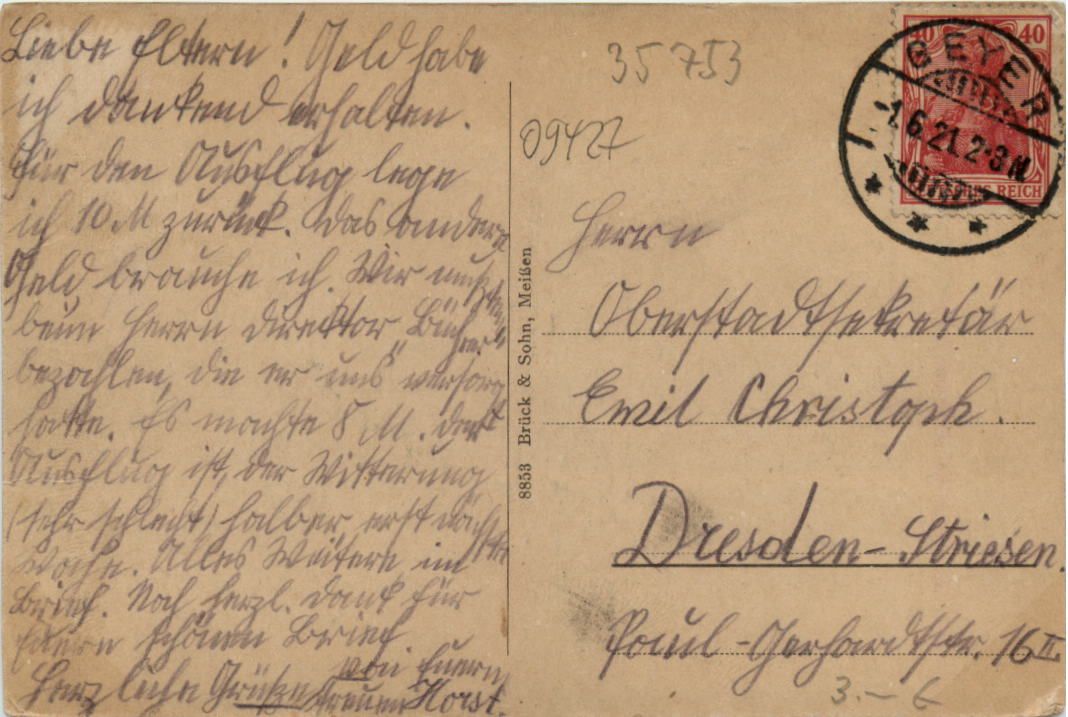 Liebe Eltern! Geld habe
ich dankend erhalten.
Für den Ausflug lege
ich 10 M zurück. Das andere
Geld brauche ich. Wir mußten
beim Herrn Direktor Bücher
bezahlen, die er uns versorgt
hatte. Es machte 8 M. Der
Ausflug ist, der Witterung
(sehr schlecht) halber erst nächste
Woche. Alles Weitere im
Brief. Noch herzl. Dank für
Euern schönen Brief.
Herzliche Grüße von Euern
treuen Horst.
8853 Brück & Sohn, Meißen
35753
09427
40 40
GEYER
1.6.21. 2-3 N.
REICH
Herrn
Oberstadtsekretär
Emil Christoph.
Dresden-Striesen.
Paul-Gerhardtstr. 16 II.
3.- 6